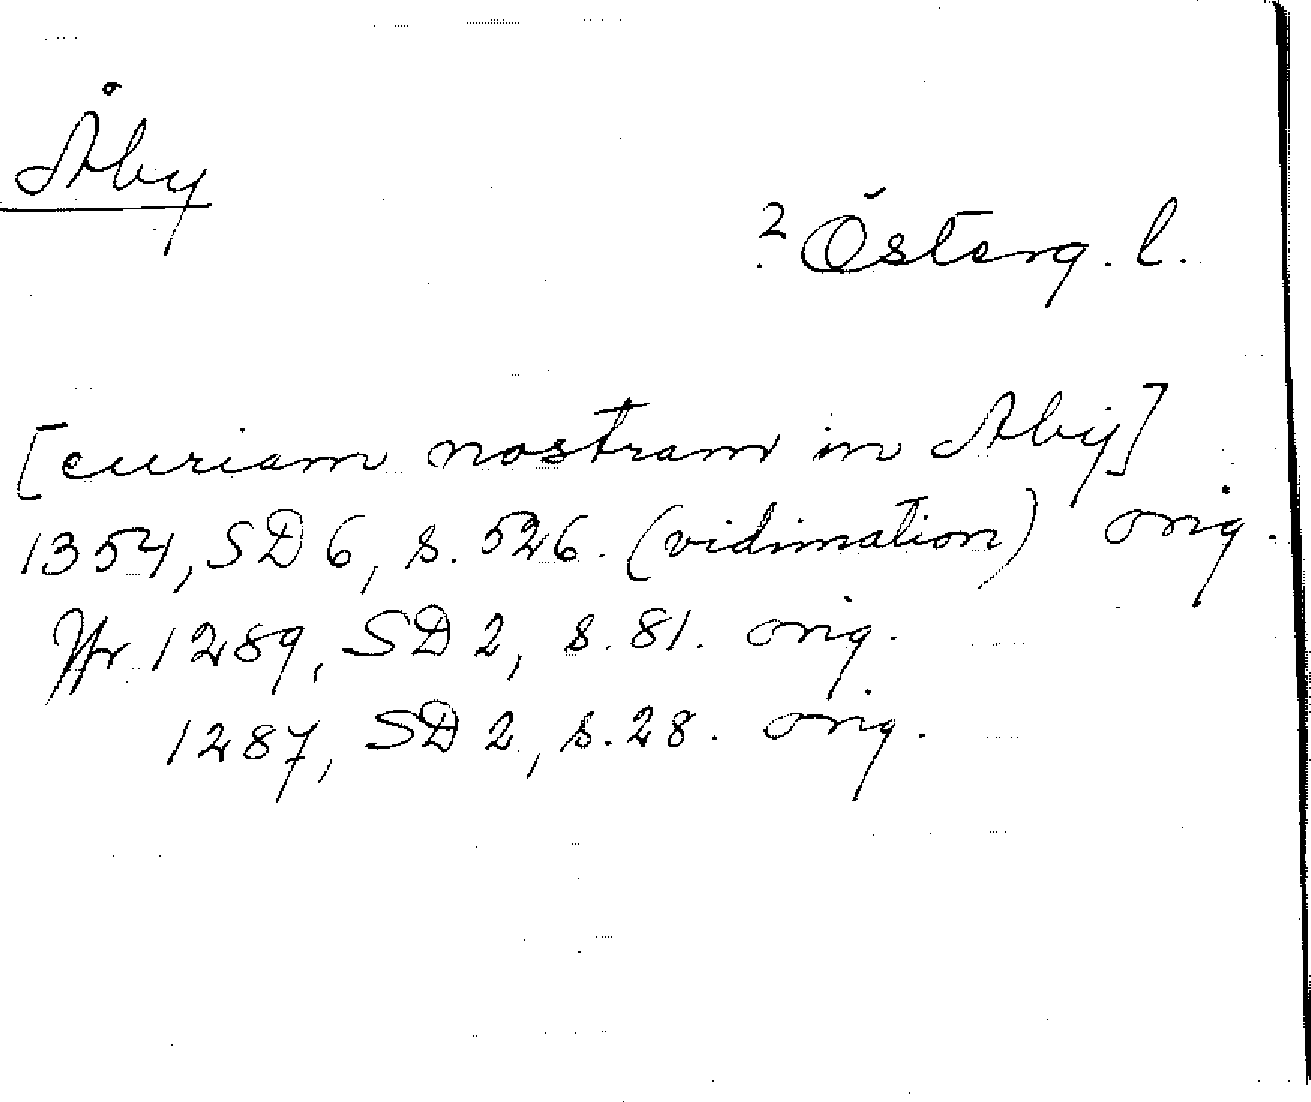 Åby
? Österg. l.
[curiam nostram in Aby]
1354, SD 6, s. 526. (vidimation) orig.
Jfr 1289, SD 2, s. 81. orig.
1287, SD 2, s. 28. orig.